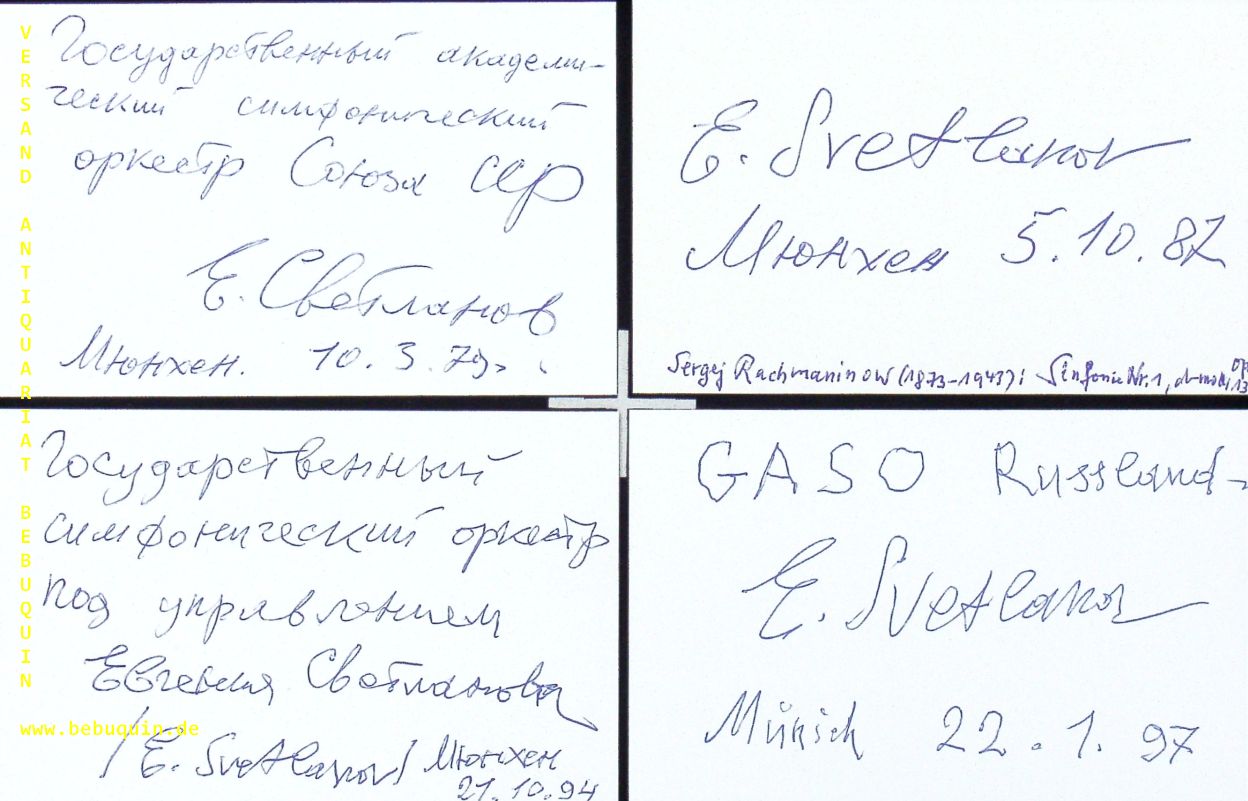 Государственный академи-
ческий симфонический
оркестр Союза ССР
Е. Светланов
Мюнхен. 10.3.79г.
E. Svetlanov
Мюнхен 5.10.87
Sergej Rachmaninow (1873-1943): Sinfonie Nr. 1, d-moll, op. 13
Государственный
симфонический оркестр
под управлением
Евгения Светланова
/E. Svetlanov/ Мюнхен
21.10.94
GASO Russland-
E. Svetlanov
Münich 22.1.97
VERSAND ANTIQUARIAT BEBUQUIN
www.bebuquin.de